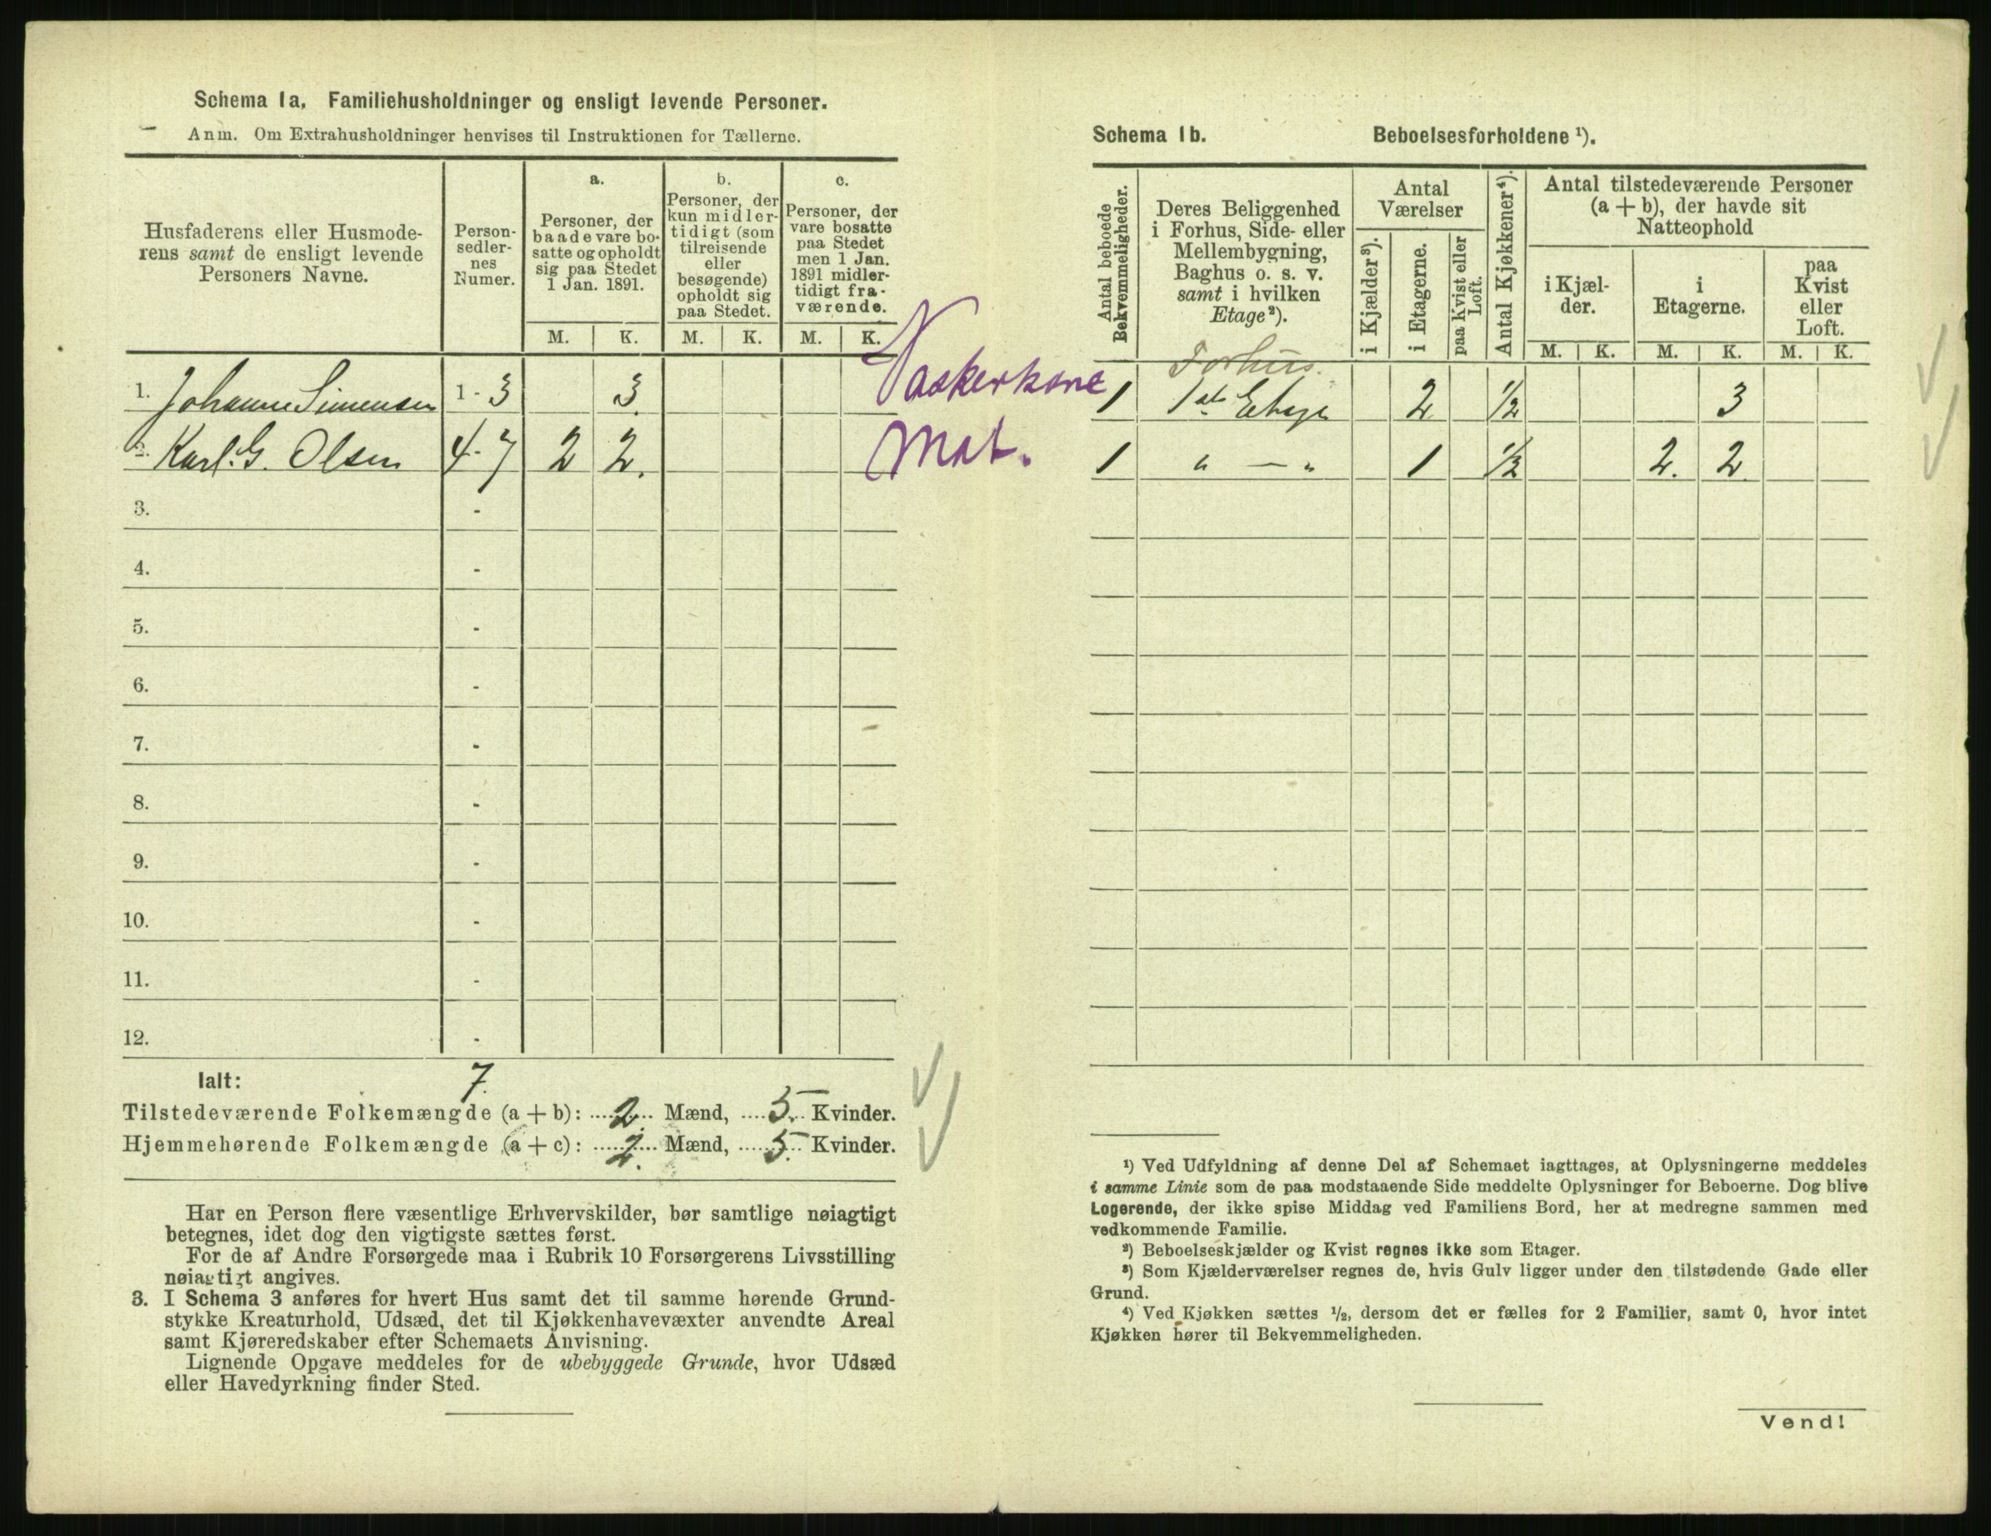 Schema 1a. Familiehusholdninger og ensligt levende Personer.
Anm. Om Extrahusholdninger henvises til Instruktionen for Tællerne.
Husfaderens eller Husmode-
rens samt de ensligt levende
Personers Navne.
Person-
sedler-
nes
Numer.
a.
Personer, der
baade vare bo-
satte og opholdt
sig paa Stedet
1 Jan. 1891.
b.
Personer, der
kun midler-
tidigt (som
tilreisende
eller
besøgende)
opholdt sig
paa Stedet.
c.
Personer, der
vare bosatte
paa Stedet
men 1 Jan.
1891 midler-
tidigt fra-
værende.
M. K. M. K. M. K.
1. Johanne Simensen 1 - 3 3. Vaskerkone
2. Karl. G. Olsen 4 - 7 2 2. Mat.
3. -
4. -
5. -
6. -
7. -
8. -
9. -
10. -
11. -
12. -
Ialt: 7.
Tilstedeværende Folkemængde (a + b): 2. Mænd, 5. Kvinder.
Hjemmehørende Folkemængde (a + c): 2. Mænd, 5. Kvinder.
Har en Person flere væsentlige Erhvervskilder, bør samtlige nøiagtigt
betegnes, idet dog den vigtigste sættes først.
For de af Andre Forsørgede maa i Rubrik 10 Forsørgerens Livsstilling
nøiagtigt angives.
3. I Schema 3 anføres for hvert Hus samt det til samme hørende Grund-
stykke Kreaturhold, Udsæd, det til Kjøkkenhavevæxter anvendte Areal
samt Kjøreredskaber efter Schemaets Anvisning.
Lignende Opgave meddeles for de ubebyggede Grunde, hvor Udsæd
eller Havedyrkning finder Sted.
Schema 1b. Beboelsesforholdene ¹).
Antal beboede
Bekvemmeligheder.
Deres Beliggenhed
i Forhus, Side- eller
Mellembygning,
Baghus o. s. v.
samt i hvilken
Etage²).
Antal
Værelser
i Kjælder³).
i Etagerne.
paa Kvist eller
Loft.
Antal Kjøkkener⁴).
Antal tilstedeværende Personer
(a + b), der havde sit
Natteophold
i Kjæl-
der.
i
Etagerne.
paa
Kvist
eller
Loft.
M. K. M. K. M. K.
Forhus.
1 1ste Etage 2 ½ 3
1 " — " 1 ½ 2. 2
¹) Ved Udfyldning af denne Del af Schemaet iagttages, at Oplysningerne meddeles
i samme Linie som de paa modstaaende Side meddelte Oplysninger for Beboerne. Dog blive
Logerende, der ikke spise Middag ved Familiens Bord, her at medregne sammen med
vedkommende Familie.
²) Beboelseskjælder og Kvist regnes ikke som Etager.
³) Som Kjælderværelser regnes de, hvis Gulv ligger under den tilstødende Gade eller
Grund.
⁴) Ved Kjøkken sættes ½, dersom det er fælles for 2 Familier, samt 0, hvor intet
Kjøkken hører til Bekvemmeligheden.
Vend!